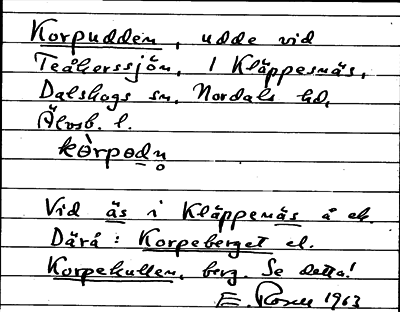 Korpudden, udde vid
Teåkerssjön, i Kläppesnäs,
Dalskogs sn, Nordals hd,
Älvsb. l.
kòrpødn̥
Vid äs i Kläppenäs å ek.
Därå: Korpeberget el.
Korpekullen, berg. Se detta!
E. Rosell 1963